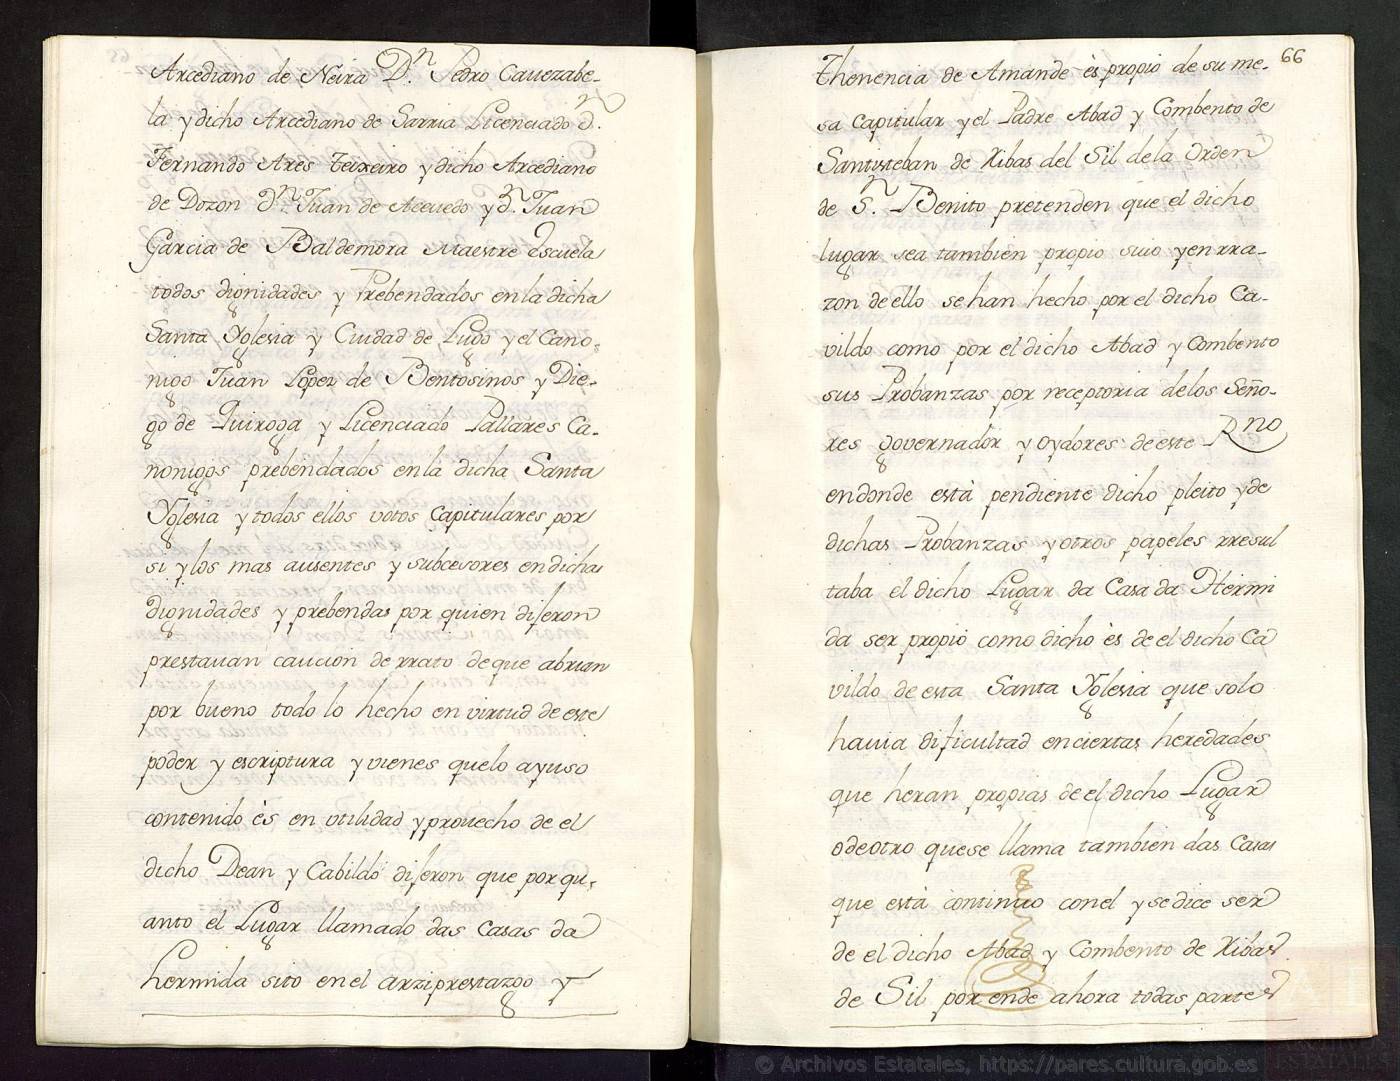 Arcediano de Neira D.n Pedro Cavezabe-
la y dicho Arcediano de Sarria Licenciado d.n
Fernando Ares teixeiro y dicho Arcediano
de Dozon D.n Juan de Acevedo y d.n Juan
Garcia de Baldemora Maestre Escuela
todos dignidades y Prebendados en la dicha
Santa Yglesia y Ciudad de Lugo y el Cano-
nigo Juan Lopez de Bentosinos y Die-
go de Quiroga y Licenciado Pallares Ca-
nonigos prebendados en la dicha Santa
Yglesia y todos ellos votos Capitulares por
si y los mas ausentes y subcesores en dichas
dignidades y prebendas por quien digeron
prestauan caucion de rrato de que abrian
por bueno todo lo hecho en virtud de este
poder y escriptura y vienes quelo a yuso
contenido ès en utilidad y prouecho de el
dicho Dean y Cabildo digeron que por qu-
anto el Lugar llamado das Casas da
hermida sito en el arziprestazgo y
66
thenencia de Amande ès propio de su me-
sa Capitular y el Padre Abad y Combento de
Santisteban de Ribas del Sil de la Orden
de S.n Benito pretenden que el dicho
lugar sea tambien propio suio y en rra-
zon de ello se han hecho por el dicho Ca-
vildo como por el dicho Abad y Combento
sus Probanzas por receptoria de los Seño-
res governador y oydores de este Rno
en donde està pendiente dicho pleito y de
dichas Probanzas y otros papeles rresul
taba el dicho Lugar da Casa da Hermi
da ser propio como dicho ès de el dicho Ca
vildo de esta Santa Yglesia que solo
hauia dificultad en ciertas heredades
que heran propias de el dicho Lugar
o de otro que se llama tambien das Casas
que està continuo con el y se dice ser
de el dicho Abad y Combento de Ribas
de Sil por ende ahora todas partes
© Archivos Estatales, https://pares.cultura.gob.es